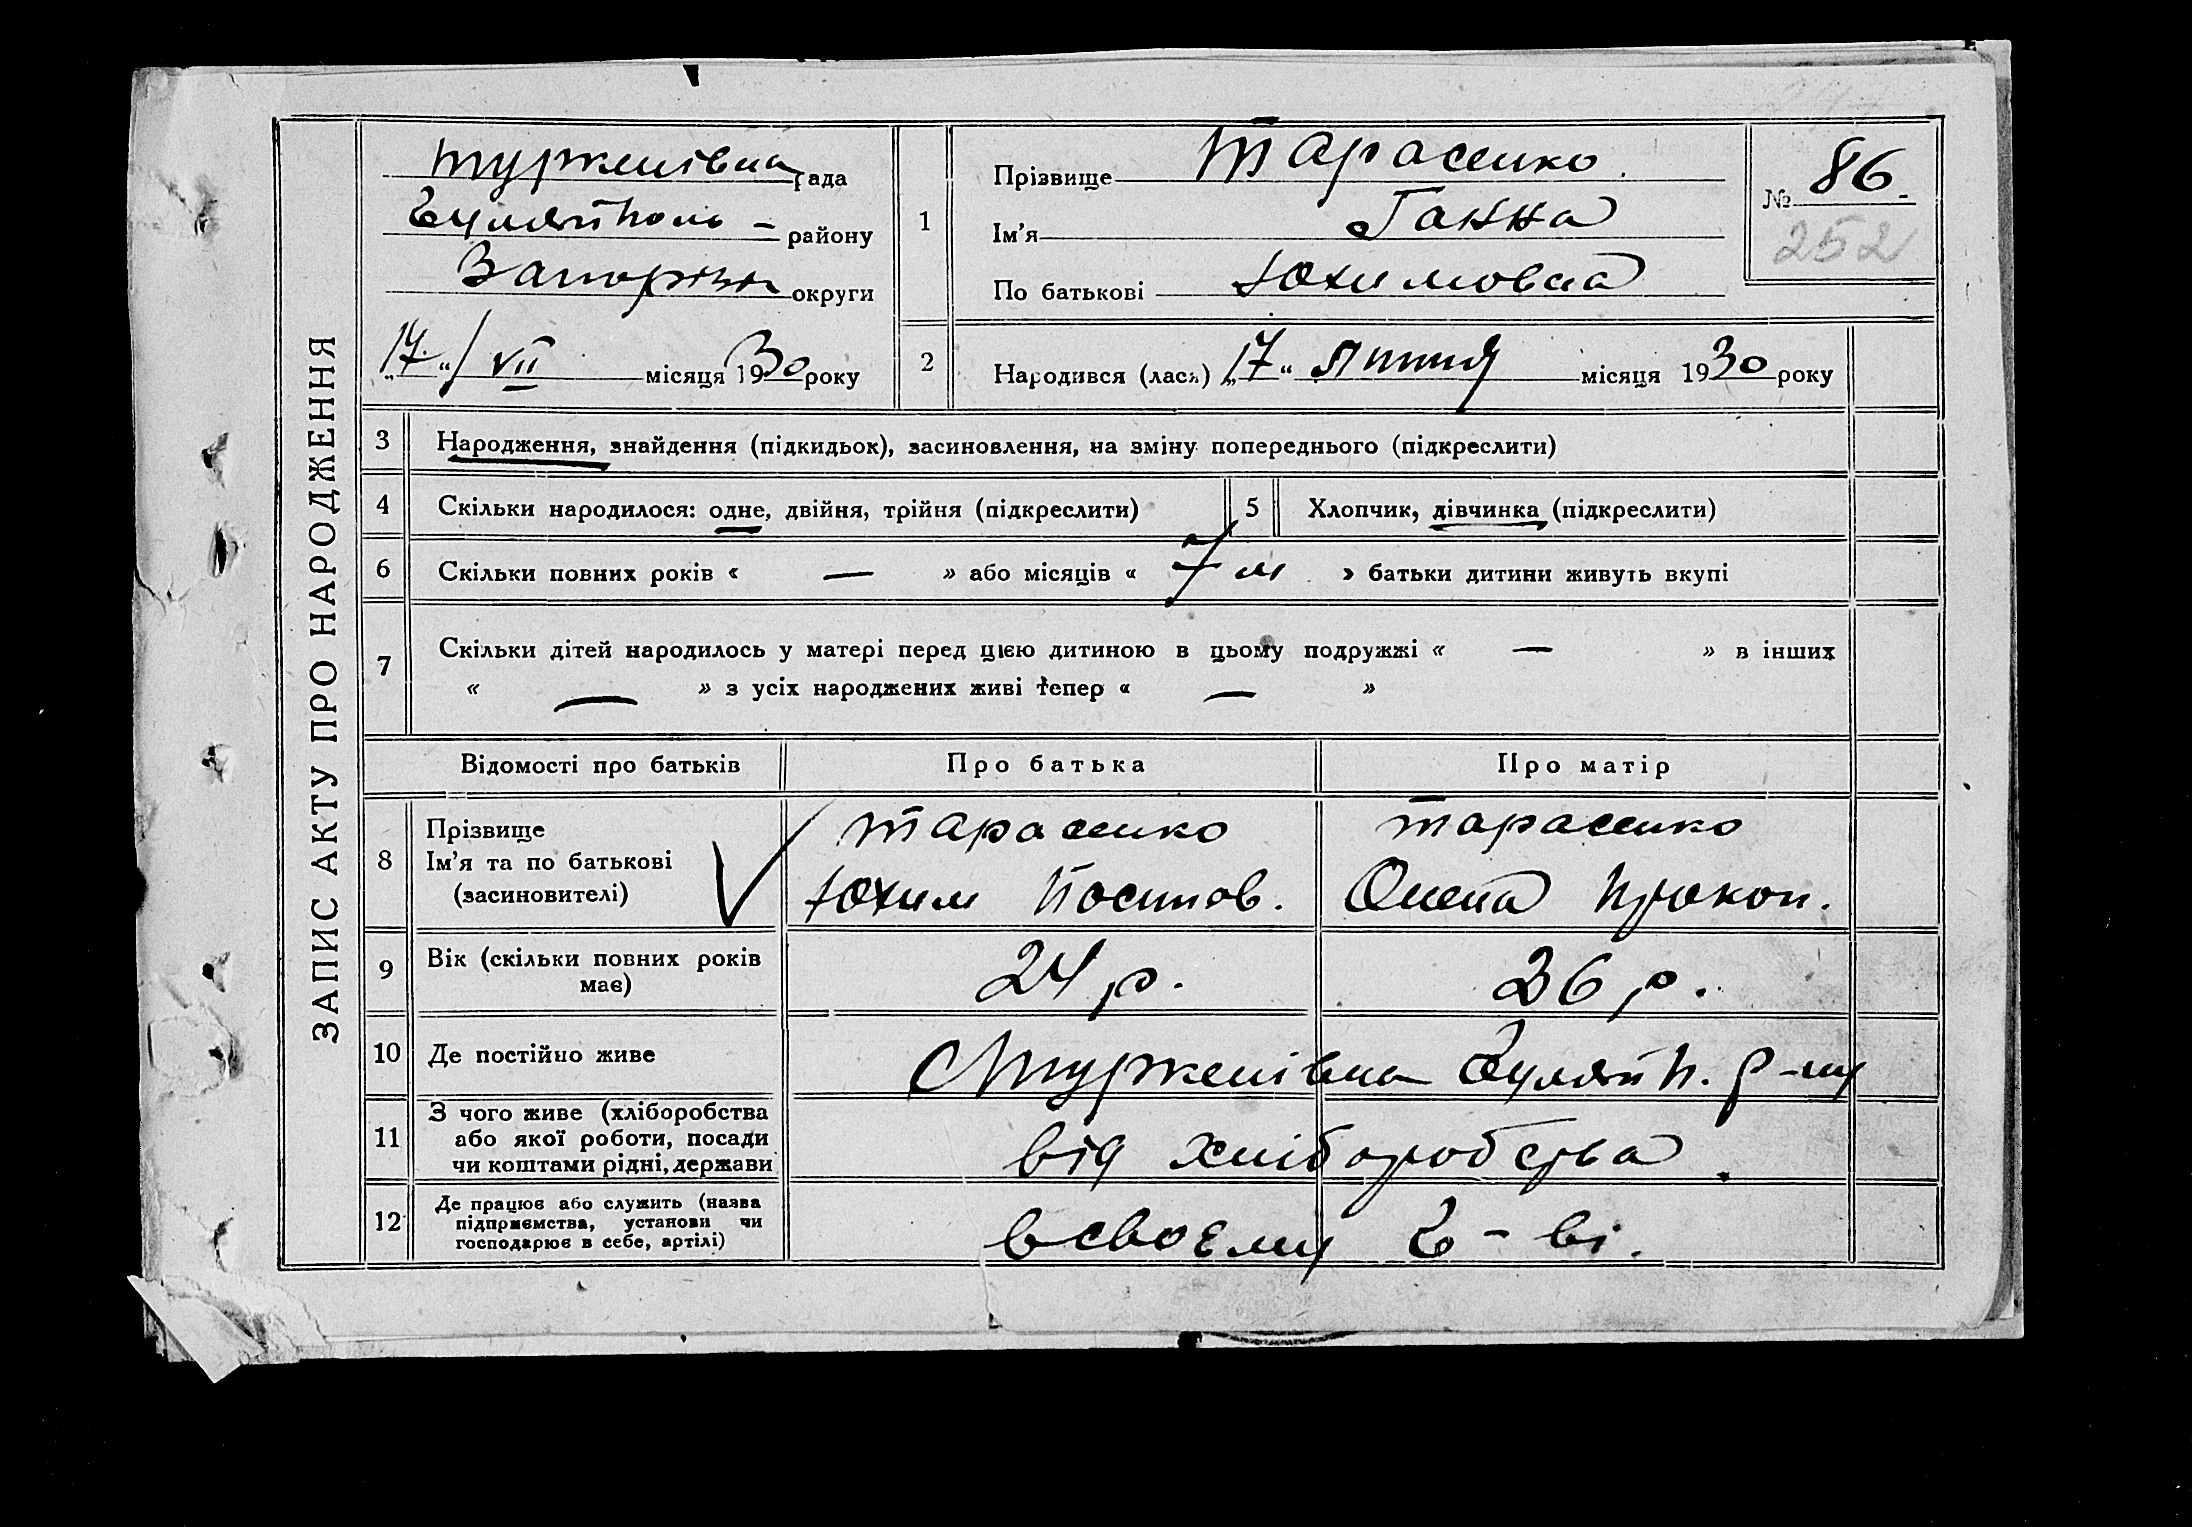 ЗАПИС АКТУ ПРО НАРОДЖЕННЯ
Турженівна рада
Гуляйполь- району
Запоріж округи
„17"/VII місяця 1930 року
1
Прізвище Тарасенко
Ім'я Ганна
По батькові Юхимовна
№ 86
252
2
Народився (лася) „17" липня місяця 1930 року
3 Народження, знайдення (підкидьок), засиновлення, на зміну попереднього (підкреслити)
4 Скільки народилося: одне, двійня, трійня (підкреслити) 5 Хлопчик, дівчинка (підкреслити)
6 Скільки повних років « — » або місяців « 7 м » батьки дитини живуть вкупі
7 Скільки дітей народилось у матері перед цією дитиною в цьому подружжі « — » в інших
« — » з усіх народжених живі тепер « — »
Відомості про батьків Про батька Про матір
8 Прізвище
Ім'я та по батькові
(засиновителі)
Тарасенко
Юхим Йосипов.
Тарасенко
Олена Прокоп.
9 Вік (скільки повних років має) 24 р. 26 р.
10 Де постійно живе с Турженівна Гуляйп. р-ну
11 З чого живе (хліборобства
або якої роботи, посади
чи коштами рідні, держави
від хліборобства.
12 Де працює або служить (назва
підприємства, установи чи
господарює в себе, артілі)
в своєму г-ві.